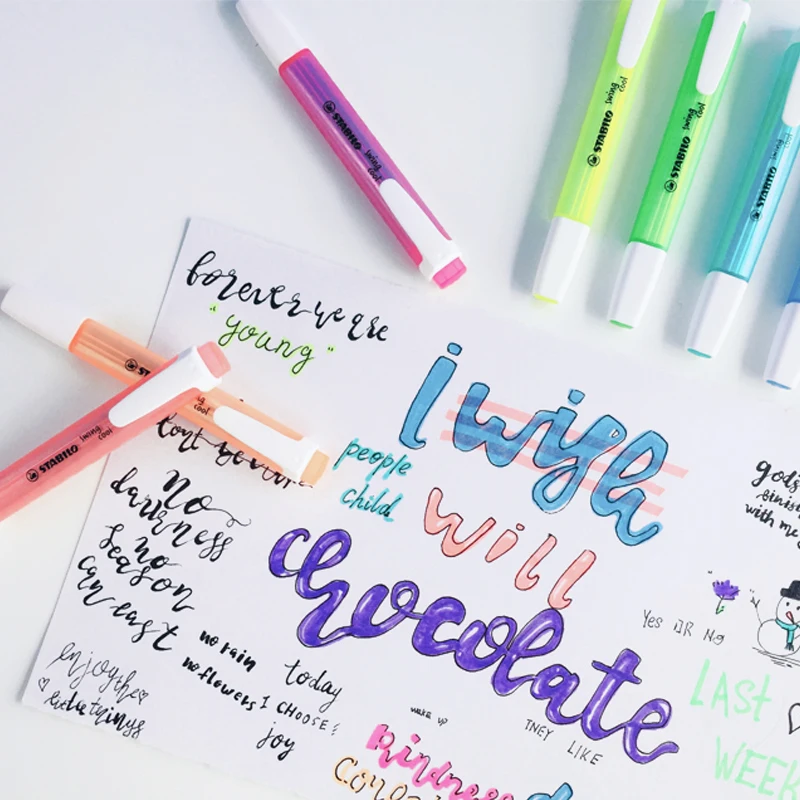 STABILO swing cool
STABILO swing cool
STABILO swing cool
STABILO swing cool
STABILO swing cool
forever we are
"young"
cool
i wish
people
child
will
chocolate
No
darkness
no
season
can
no rain
no flowers
enjoy the
little things
today
I CHOOSE
joy
wake up
THEY LIKE
kindness
with me
Yes OR No
LAST
WEEK